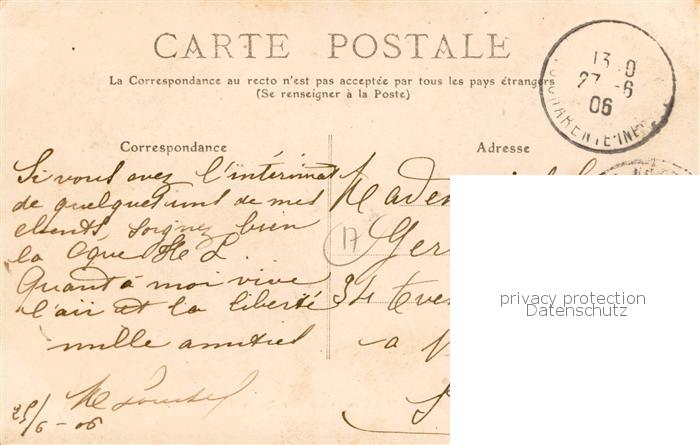 CARTE POSTALE
La Correspondance au recto n'est pas acceptée par tous les pays étrangers
(Se renseigner à la Poste)
Correspondance
Si vous avez l'intérimat
de quelques uns de mes
clients, soignez bien
la Cque H L.
Quant à moi vive
l'air et la liberté
mille amitiés
25/6-06
Adresse
17
34
a
13
27 -6
06
CHARENTE-INF
privacy protection
Datenschutz